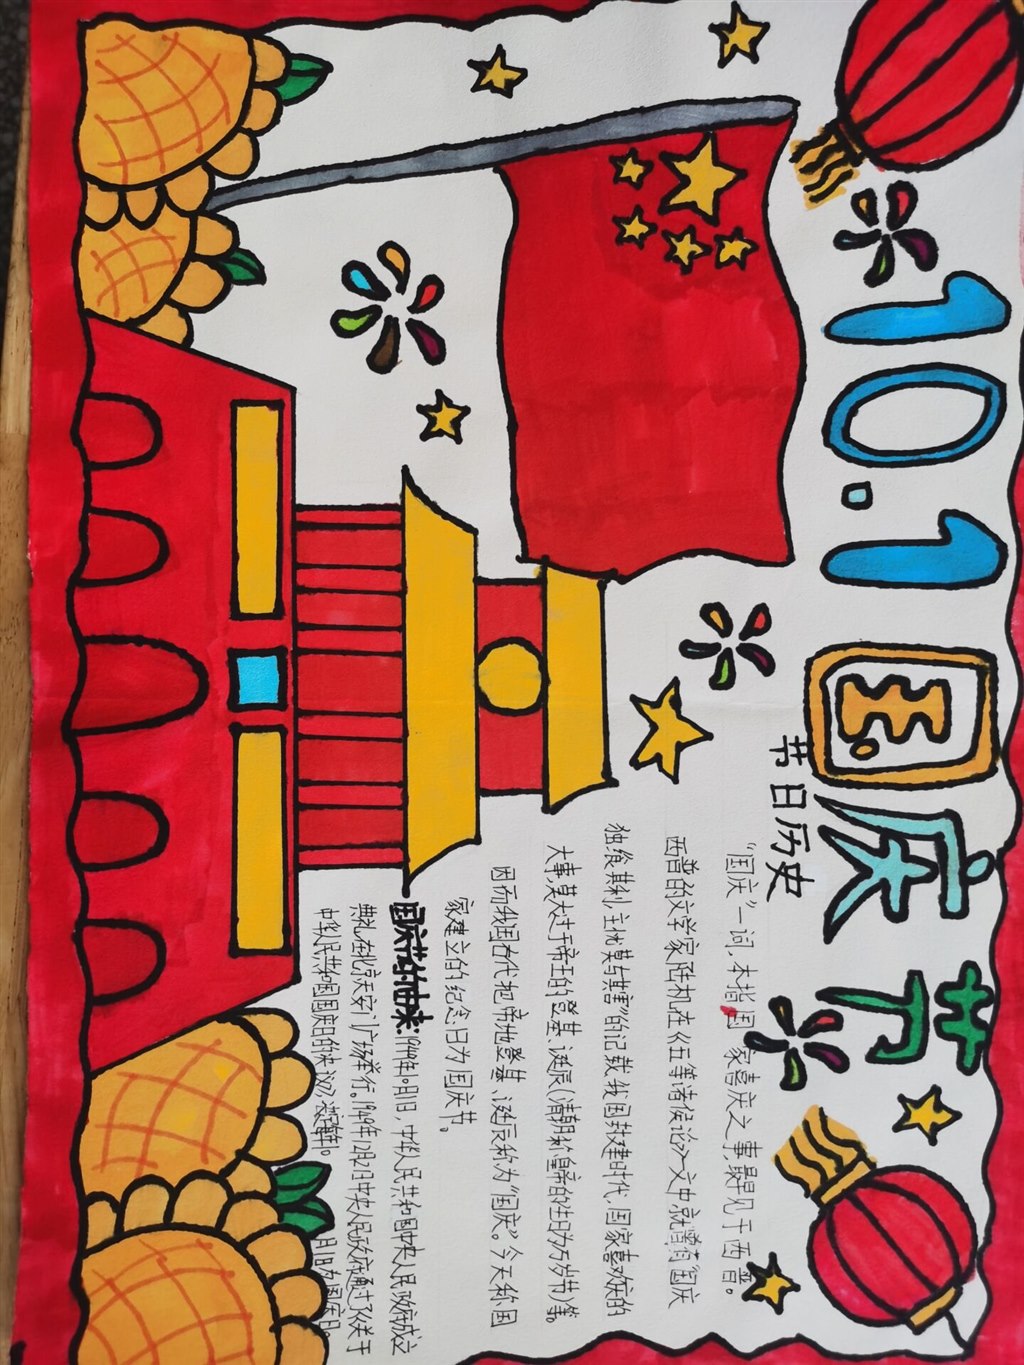 10.1国庆节
节日历史
“国庆”一词,本指国家喜庆之事,最早见于西晋。
西晋的文学家陆机在《五等诸侯论》一文中就曾有“国庆
独飨其利,主忧莫与其害”的记载、我国封建时代,国家喜欢的
大事,莫大过于帝王的登基、诞辰(清朝称皇帝的生日为万岁节)等。
因而我国古代把帝地登基、诞辰称为“国庆”。今天称国
家建立的纪念日为国庆节。
国庆节的由来:1949年10月1日,中华人民共和国中央人民政府成立
典礼在北京天安门广场举行。1949年12月2日中央人民政府通过了《关于
中华人民共和国国庆日的决议》,
月1日为国庆日。